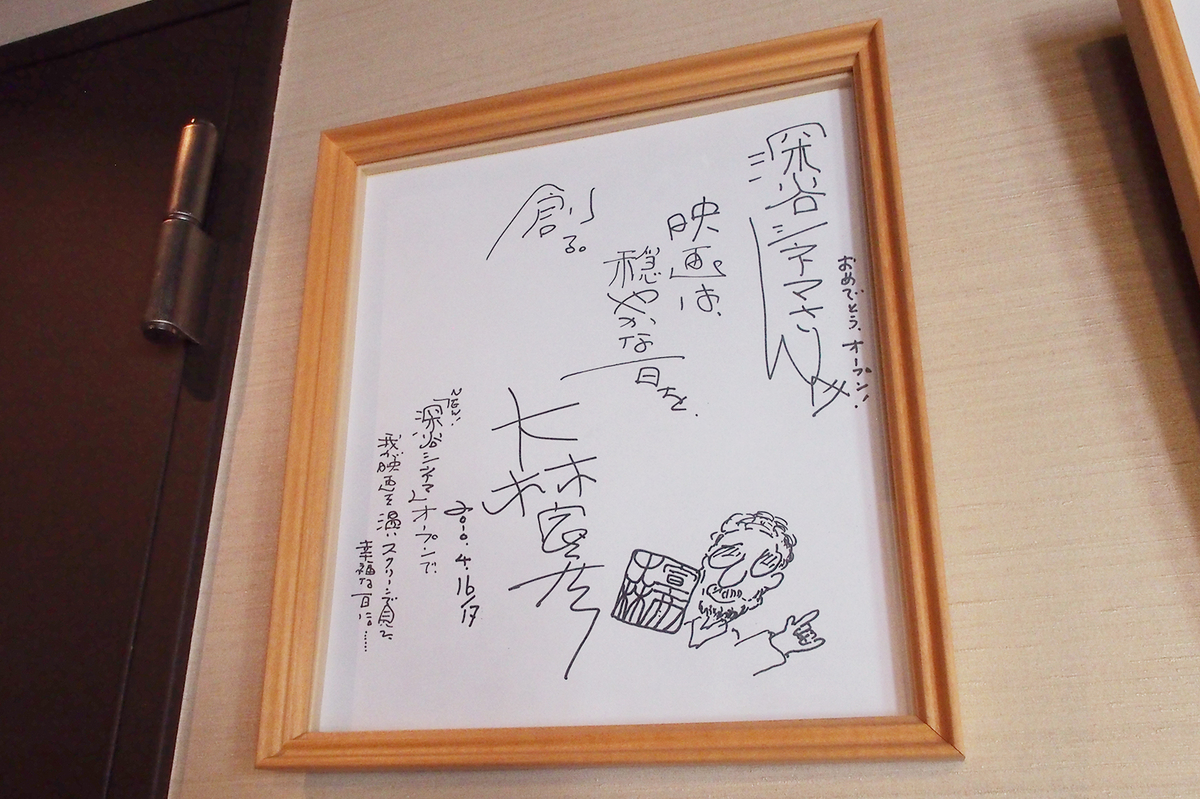 深谷シネマさん
おめでとう、オープン!
映画は、
穏やかな一日を、
創る。
大林宣彦
2010.4.16/17
「深谷シネマ」オープンで、
我が映画を温いスクリーンで見て、
幸福な一日に……
大林宣彦